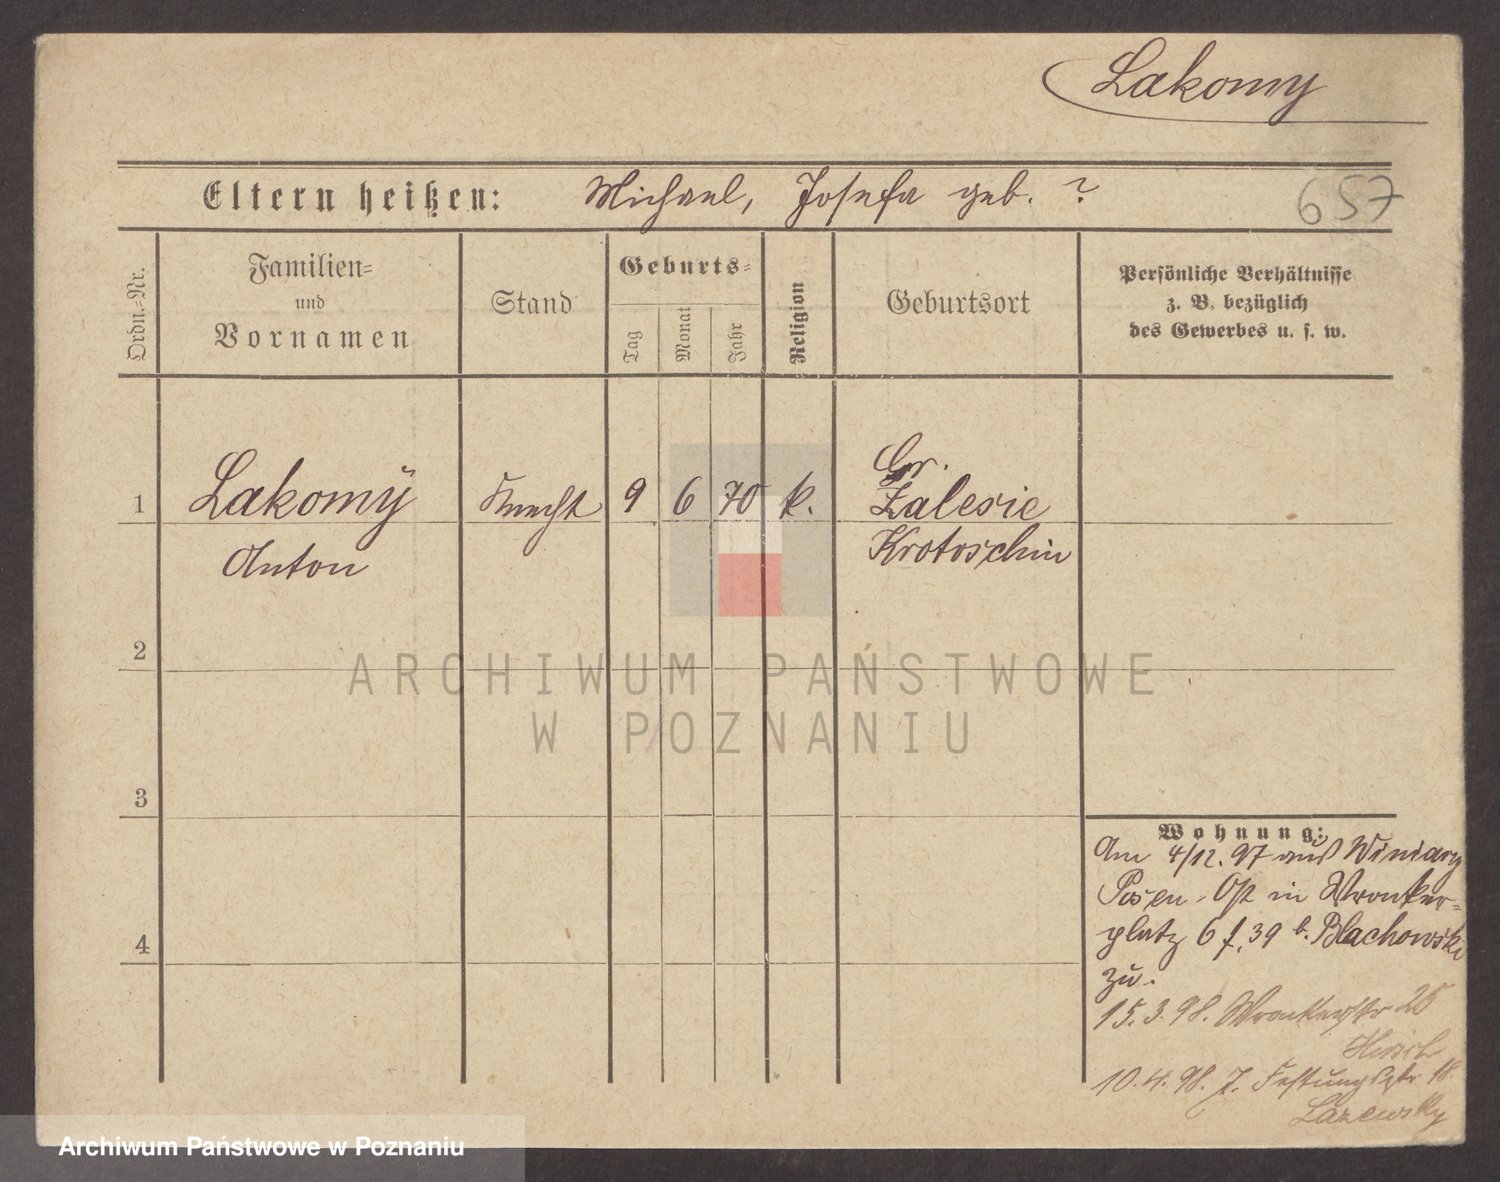 Lakomy
Eltern heißen: Michael, Josefa geb. ?
657
Ordn.-Nr.
Familien-
und
Vornamen
Stand
Geburts-
Tag
Monat
Jahr
Religion
Geburtsort
Persönliche Verhältnisse
z. B. bezüglich
des Gewerbes u. s. w.
1
Lakomÿ
Anton
Knecht
9
6
70
k.
Gr.
Zalesie
Krotoschin
2
ARCHIWUM PAŃSTWOWE
W POZNANIU
3
4
Wohnung:
Am 4/12. 97 aus Winiary
Posen-Ost in Wronker-
platz 6 f. 39 b. Blachowski
zu.
15.3.98. Wronkerstr 25
Hirsch
10.4.98. Festungsstr. 18
Lazewsky
Archiwum Państwowe w Poznaniu